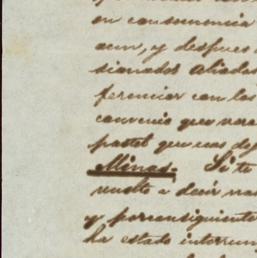 en consecuencia
aun, y despues
sionados aliados
ferenciar con los
convenio que vera
pastel que eus dej
Minas. Si te
vuelto a decir nad
y por consiguiente
ha estado interrum